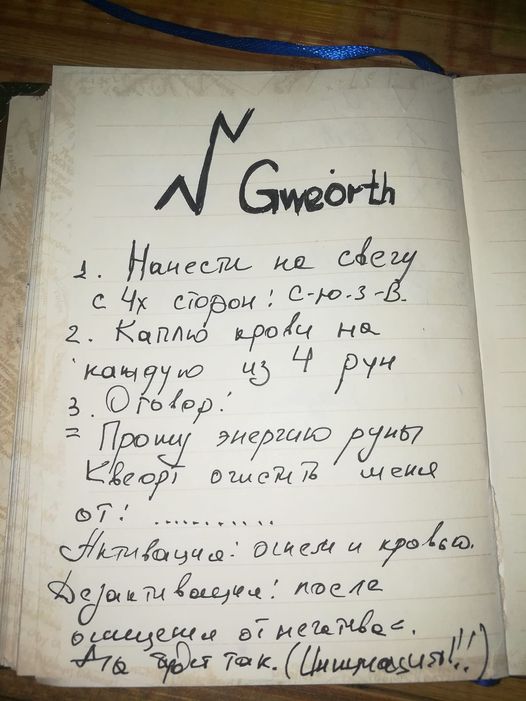 Gweorth
1. Нанести на свечу
с 4х сторон: С-Ю-З-В.
2. Каплю крови на
каждую из 4 рун
3. Оговор:
= Прошу энергию руны
Квеорт очистить меня
от: ...........
Активация: огнем и кровью.
Дезактивация: после
очищения от негатива.
Да будет так. (!!!)